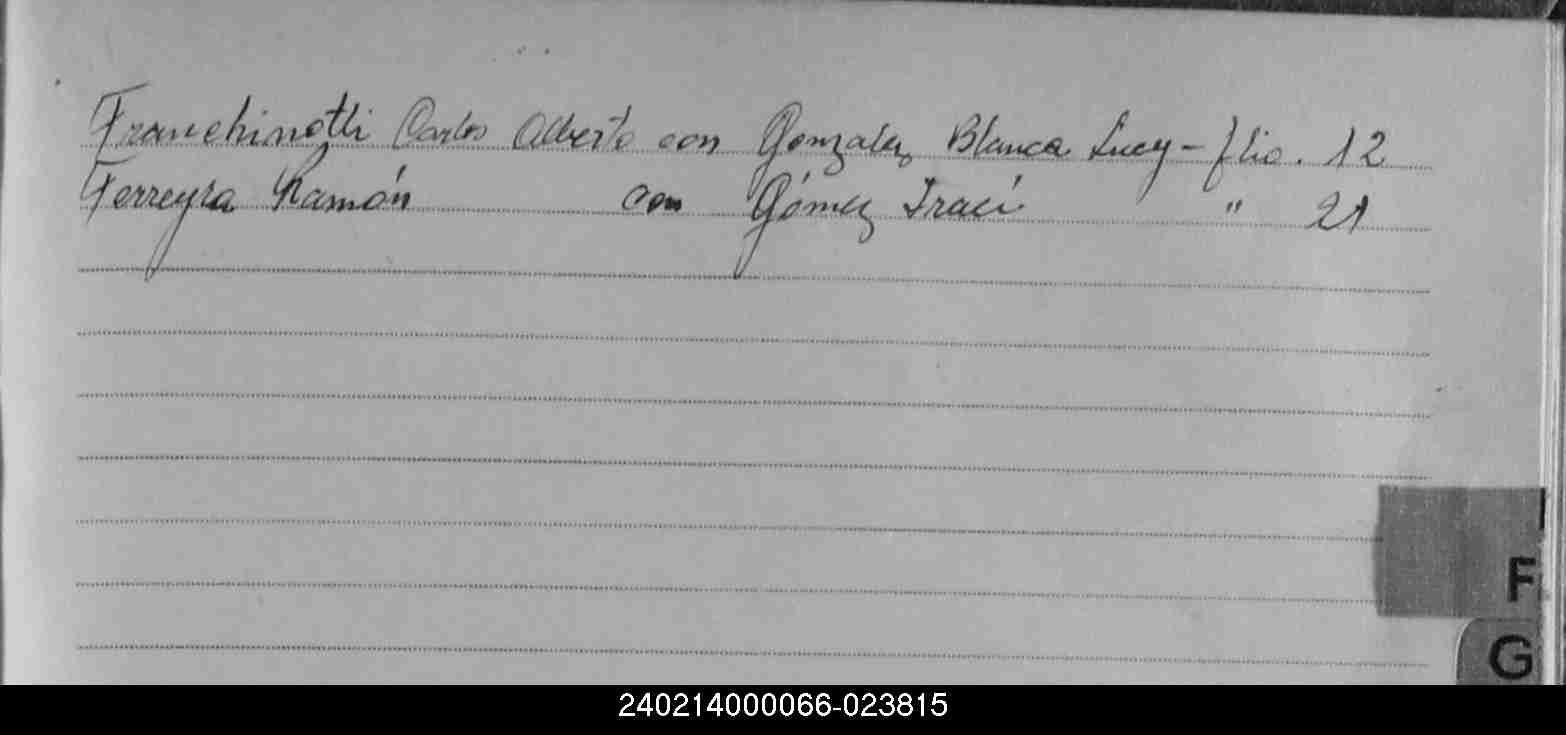 Franchinotti Carlos Alberto con Gonzalez Blanca Lucy - flio. 12
Ferreyra Ramón con Gómez Iraci " 21
F
G
240214000066-023815